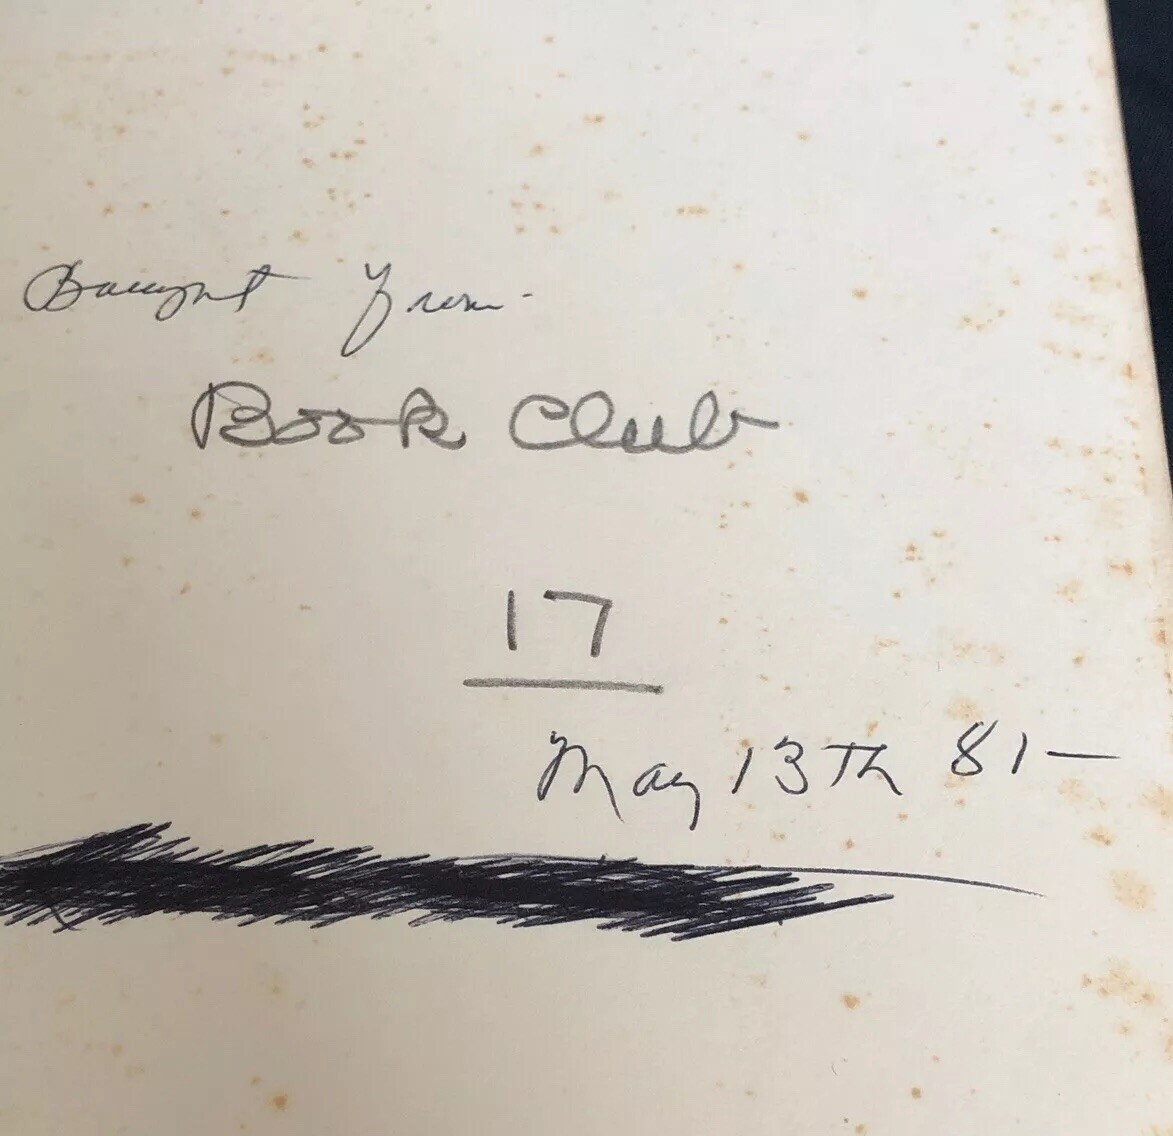 Bought from -
Book Club
17
May 13Th 81-